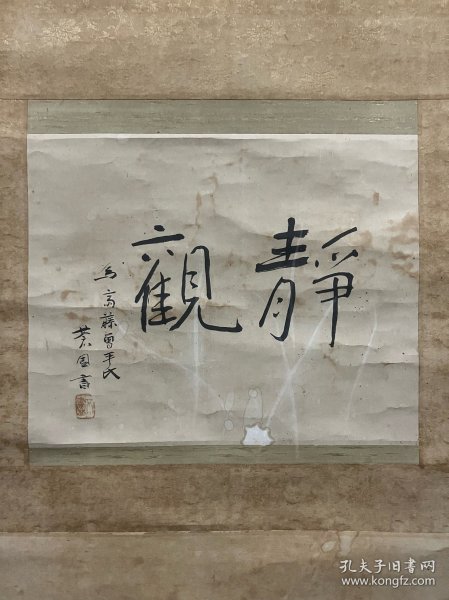 靜觀
為斎藤曽平氏
蒼園書
孔夫子旧书网
www.kongfz.com